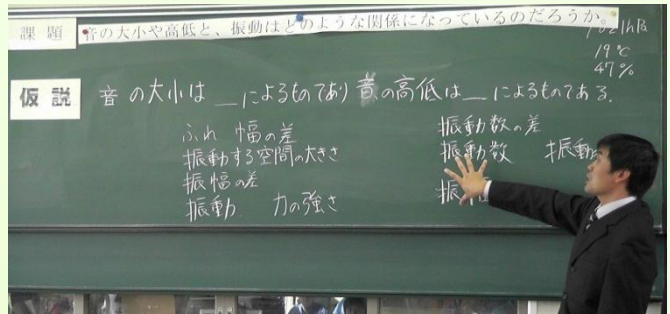 課題
音の大小や高低と、振動はどのような関係になっているのだろうか。
1021hPa
19℃
47%
仮説
音の大小は＿によるものであり音の高低は＿によるものである.
ふれ 幅の差
振動する空間の大きさ
振幅の差
振動 力の強さ
振動数の差
振動数 振動
振